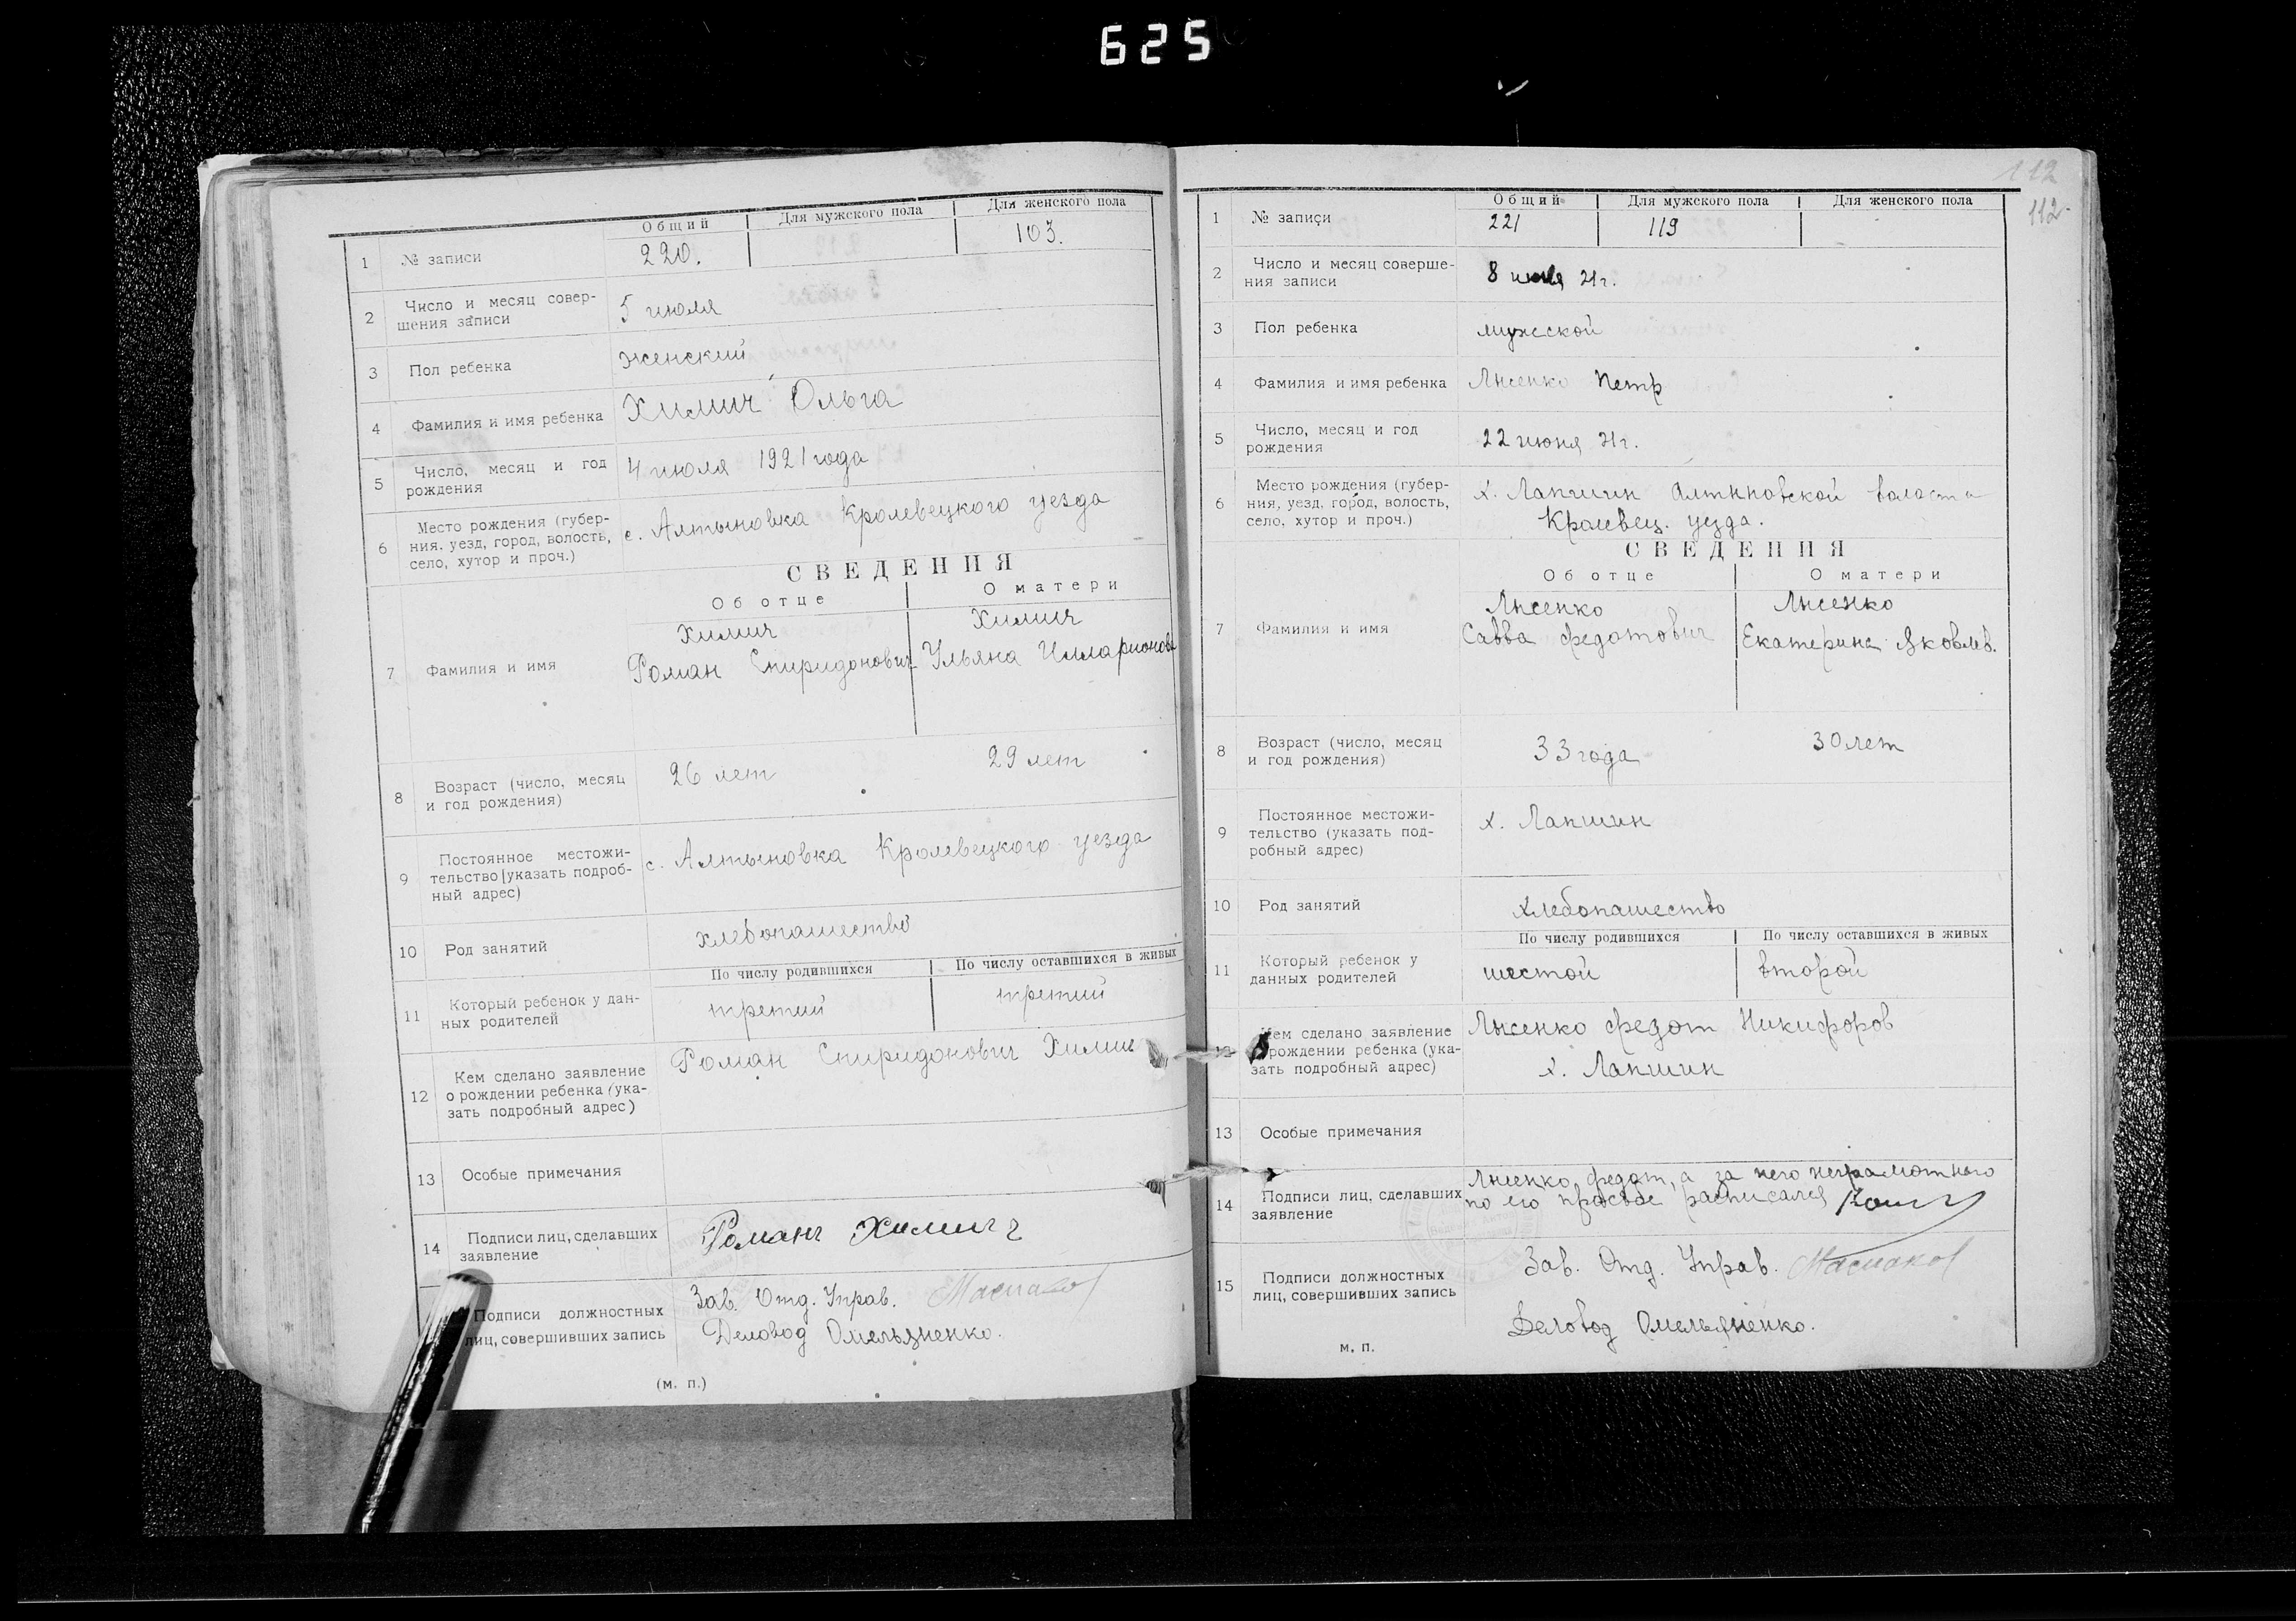 625
Общий Для мужского пола Для женского пола
1 № записи 220. 103.
2 Число и месяц совер-
шения записи 5 июля
3 Пол ребенка женский
4 Фамилия и имя ребенка Химич Ольга
5 Число, месяц и год
рождения 4 июля 1921 года
6 Место рождения (губер-
ния. уезд, город, волость,
село, хутор и проч.) с. Алтыновка Кролевецкого уезда
СВЕДЕНИЯ
Об отце О матери
7 Фамилия и имя
Химич Химич
Роман Спиридонович Ульяна Илларионова
8 Возраст (число, месяц
и год рождения) 26 лет 29 лет
9 Постоянное местожи-
тельство (указать подроб-
ный адрес) с. Алтыновка Кролевецкого уезда
10 Род занятий хлебопашество
По числу родившихся По числу оставшихся в живых
11 Который ребенок у дан-
ных родителей третий третий
12 Кем сделано заявление
о рождении ребенка (ука-
зать подробный адрес) Роман Спиридонович Химич
13 Особые примечания
14 Подписи лиц, сделавших
заявление Роман Химич
Подписи должностных
лиц, совершивших запись
Зав. Отд. Управ.
Деловод Омельяненко.
(м. п.)
112
112.
Общий Для мужского пола Для женского пола
1 № записи 221 119
2 Число и месяц соверше-
ния записи 8 июля 21 г.
3 Пол ребенка мужской
4 Фамилия и имя ребенка Лысенко Петр
5 Число, месяц и год
рождения 22 июня 21 г.
6 Место рождения (губер-
ния, уезд, город, волость,
село, хутор и проч.)
х. Лапшин Алтыновской волости
Кролевец. уезда.
СВЕДЕНИЯ
Об отце О матери
7 Фамилия и имя
Лысенко Лысенко
Савва Федотович Екатерина Яковлев.
8 Возраст (число, месяц
и год рождения) 33 года 30 лет
9 Постоянное местожи-
тельство (указать под-
робный адрес) х. Лапшин
10 Род занятий хлебопашество
По числу родившихся По числу оставшихся в живых
11 Который ребенок у
данных родителей шестой второй
12 Кем сделано заявление
о рождении ребенка (ука-
зать подробный адрес)
Лысенко Федот Никифоров
х. Лапшин
13 Особые примечания
14 Подписи лиц, сделавших
заявление
Лысенко Федот, а за него неграмотного
по его просьбе расписался
15 Подписи должностных
лиц, совершивших запись
Зав. Отд. Управ.
Деловод Омельяненко.
м. п.